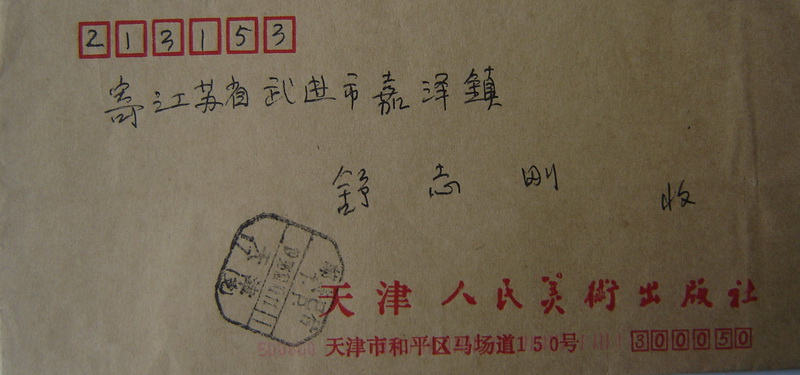 213153
寄江苏省武进市嘉泽鎮
舒志刚 收
天津人民美術出版社
天津市和平区马场道150号 300050